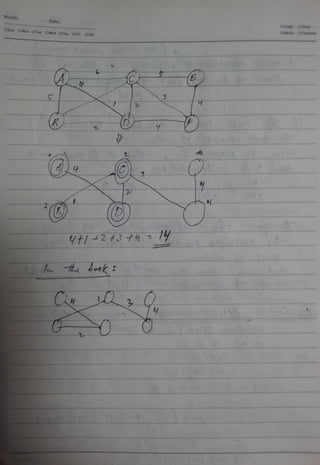 Date.
A 6 C 5 E
5 4 1 2 3 4
B 2 D 4 F
A 4 C 3
2 B 1 D 2 4
4+1+2+3+4 = 14
In the book:
4 1 3 4
2